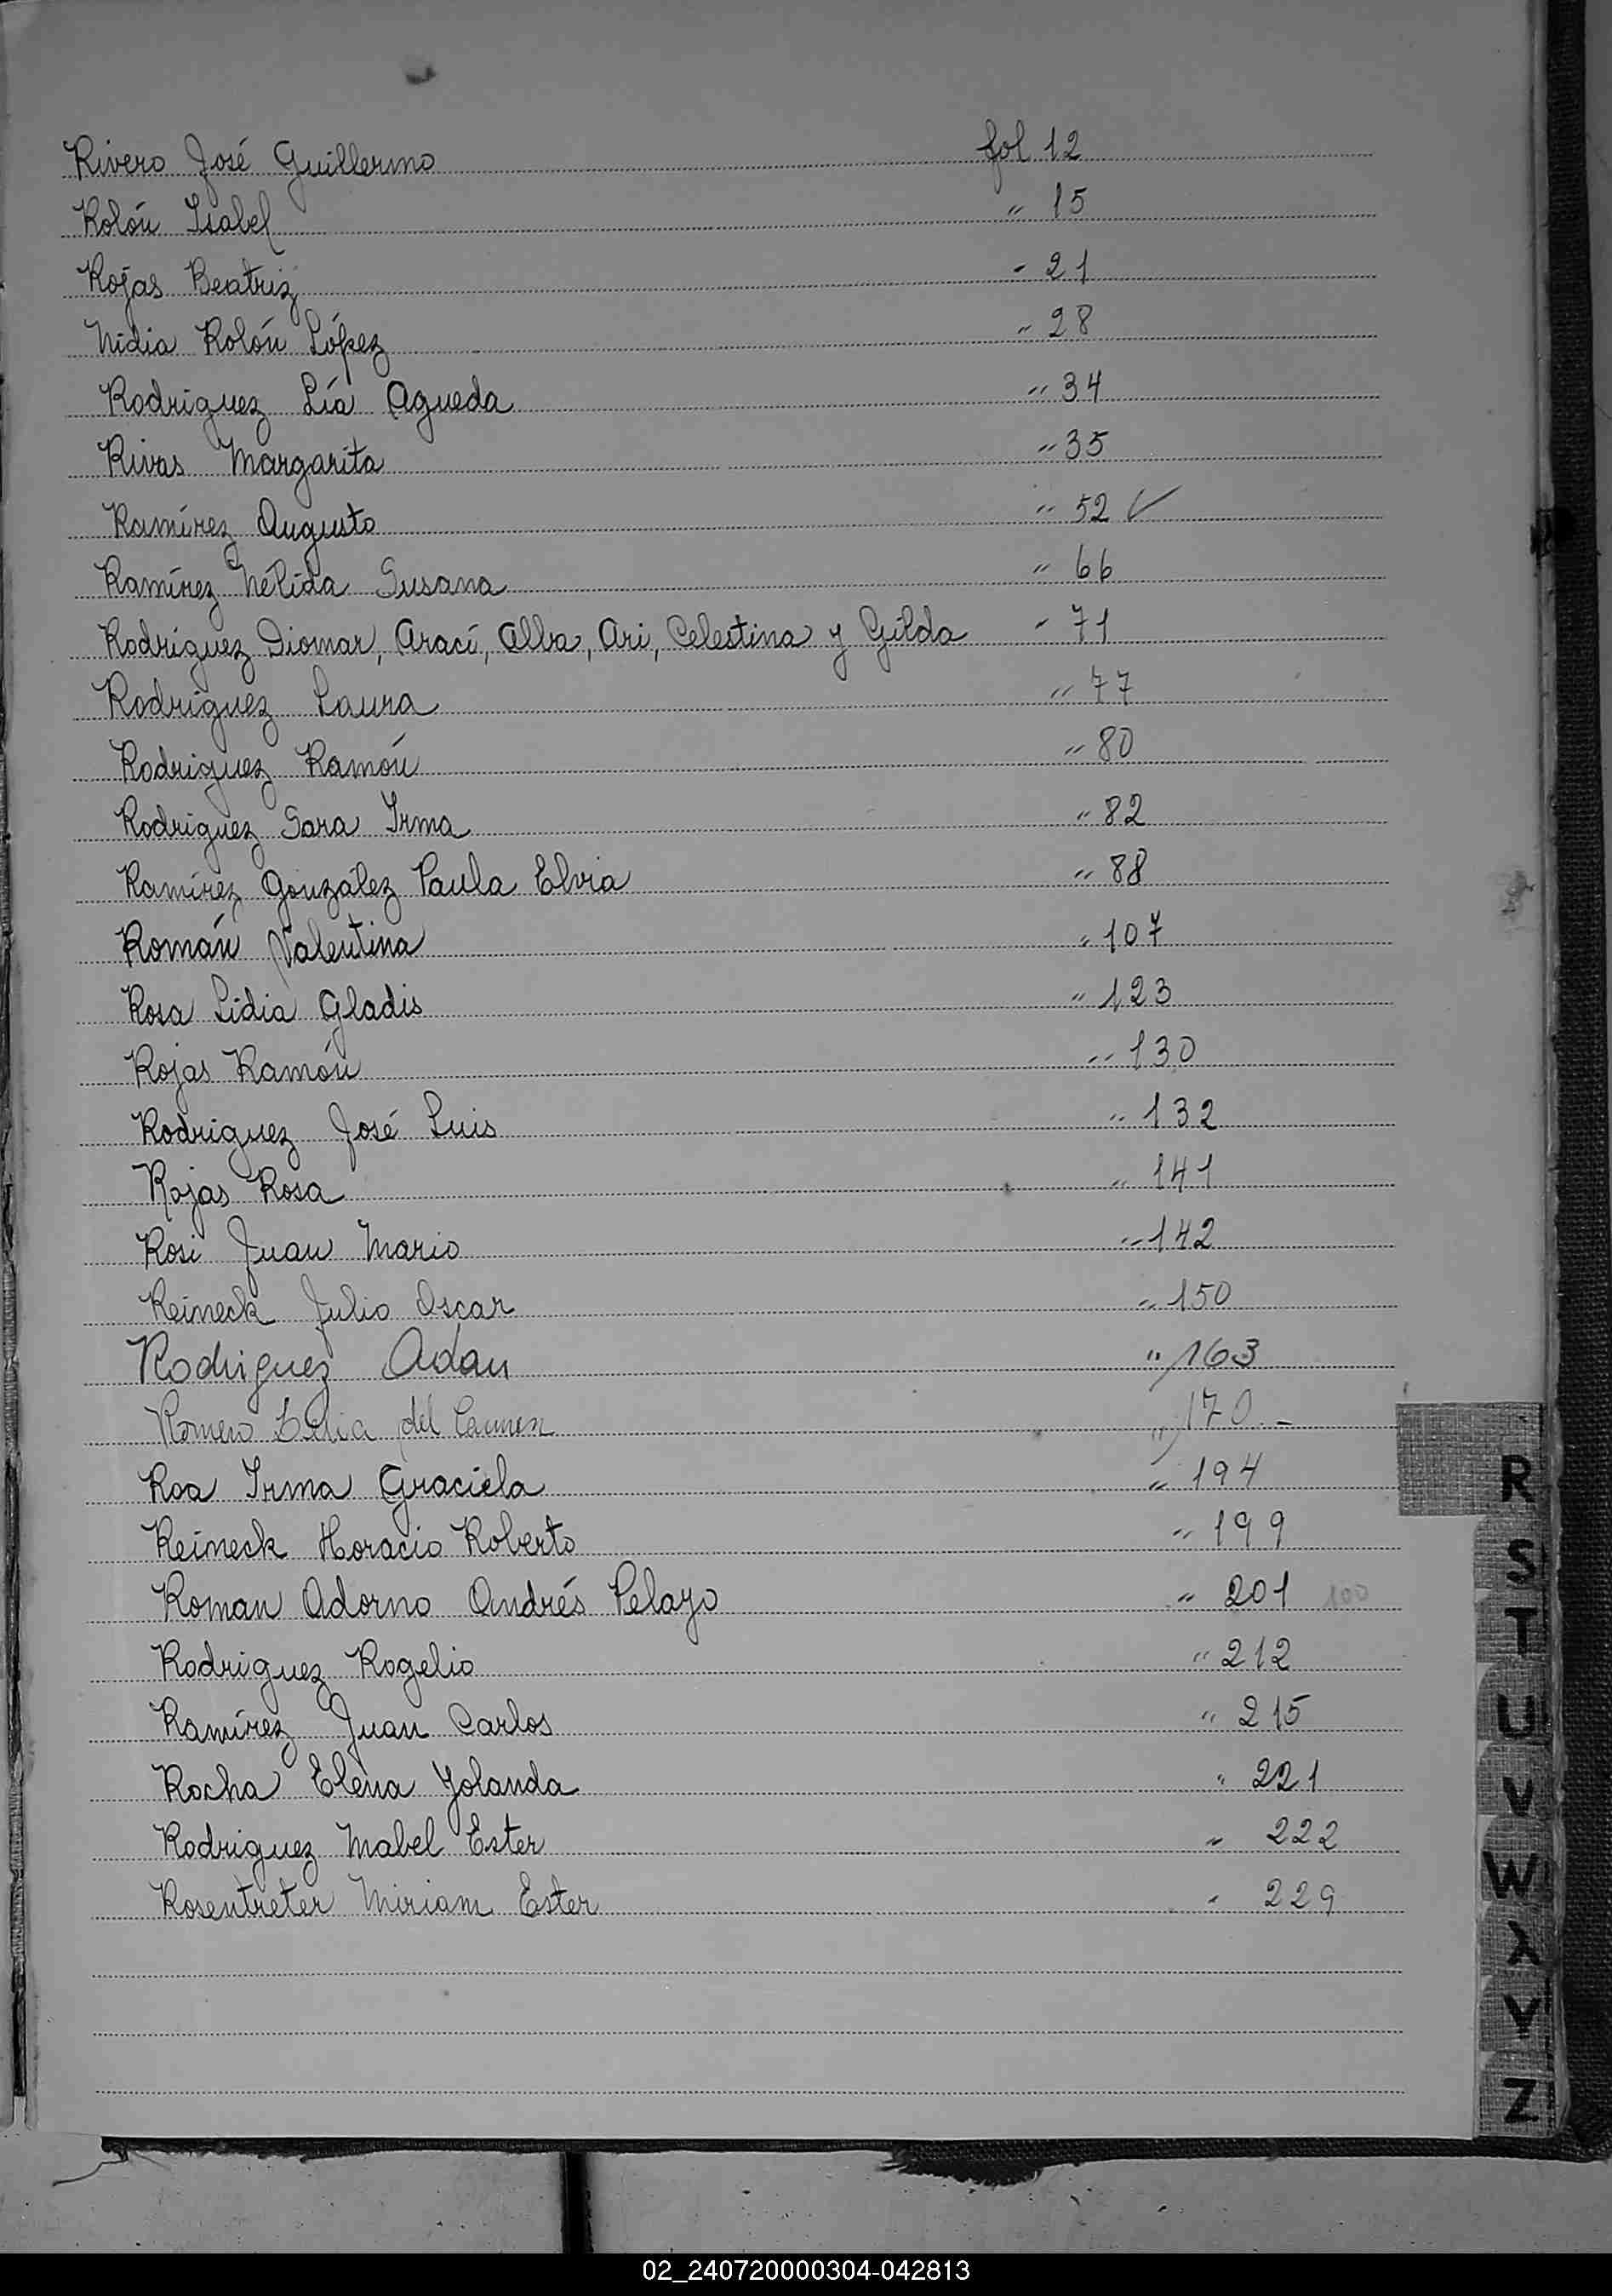 Rivero José Guillermo fol 12
Rolón Isabel " 15
Rojas Beatriz " 21
Nidia Rolón López " 28
Rodriguez Lía Agueda " 34
Rivas Margarita " 35
Ramírez Augusto " 52 ✓
Ramírez Nélida Susana " 66
Rodríguez Diomar, Arací, Alba, Ari, Celestina y Gilda " 71
Rodriguez Laura " 77
Rodriguez Ramón " 80
Rodriguez Sara Irma " 82
Ramírez González Paula Elvia " 88
Román Valentina " 107
Rosa Lidia Gladis " 123
Rojas Ramón " 130
Rodriguez José Luis " 132
Rojas Rosa " 141
Rosi Juan Mario " 142
Reineck Julio Oscar " 150
Rodriguez Adan " 163
Romero del Carmen " 170.-
Roa Irma Graciela " 194
Reineck Horacio Roberto " 199
Roman Adorno Andrés Pelayo " 201 100
Rodriguez Rogelio " 212
Ramírez Juan Carlos " 215
Rocha Elena Yolanda " 221
Rodriguez Mabel Ester " 222
Rosentreter Miriam Ester " 229
R
S
T
U
V
W
X
Y
Z
02_240720000304-042813